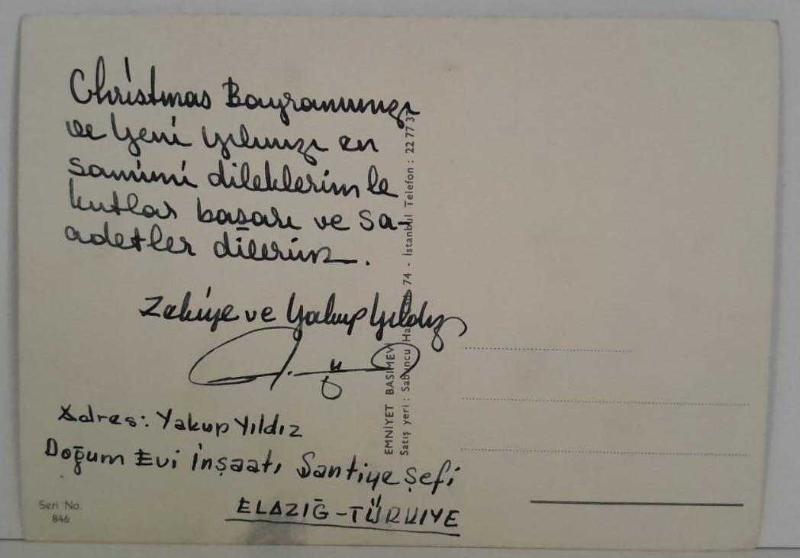 Christmas Bayramınızı
ve Yeni Yılınızı en
samimi dileklerimle
kutlar başarı ve sa-
adetler dilerim.
Zekiye ve Yakup Yıldız
Adres: Yakup Yıldız
Doğum Evi İnşaatı Şantiye Şefi
ELAZIĞ-TÜRKİYE
Seri No.
846
EMNİYET BASIMEVİ
Satış yeri: Sabuncu Ha 74 - İstanbul Telefon: 22 77 37